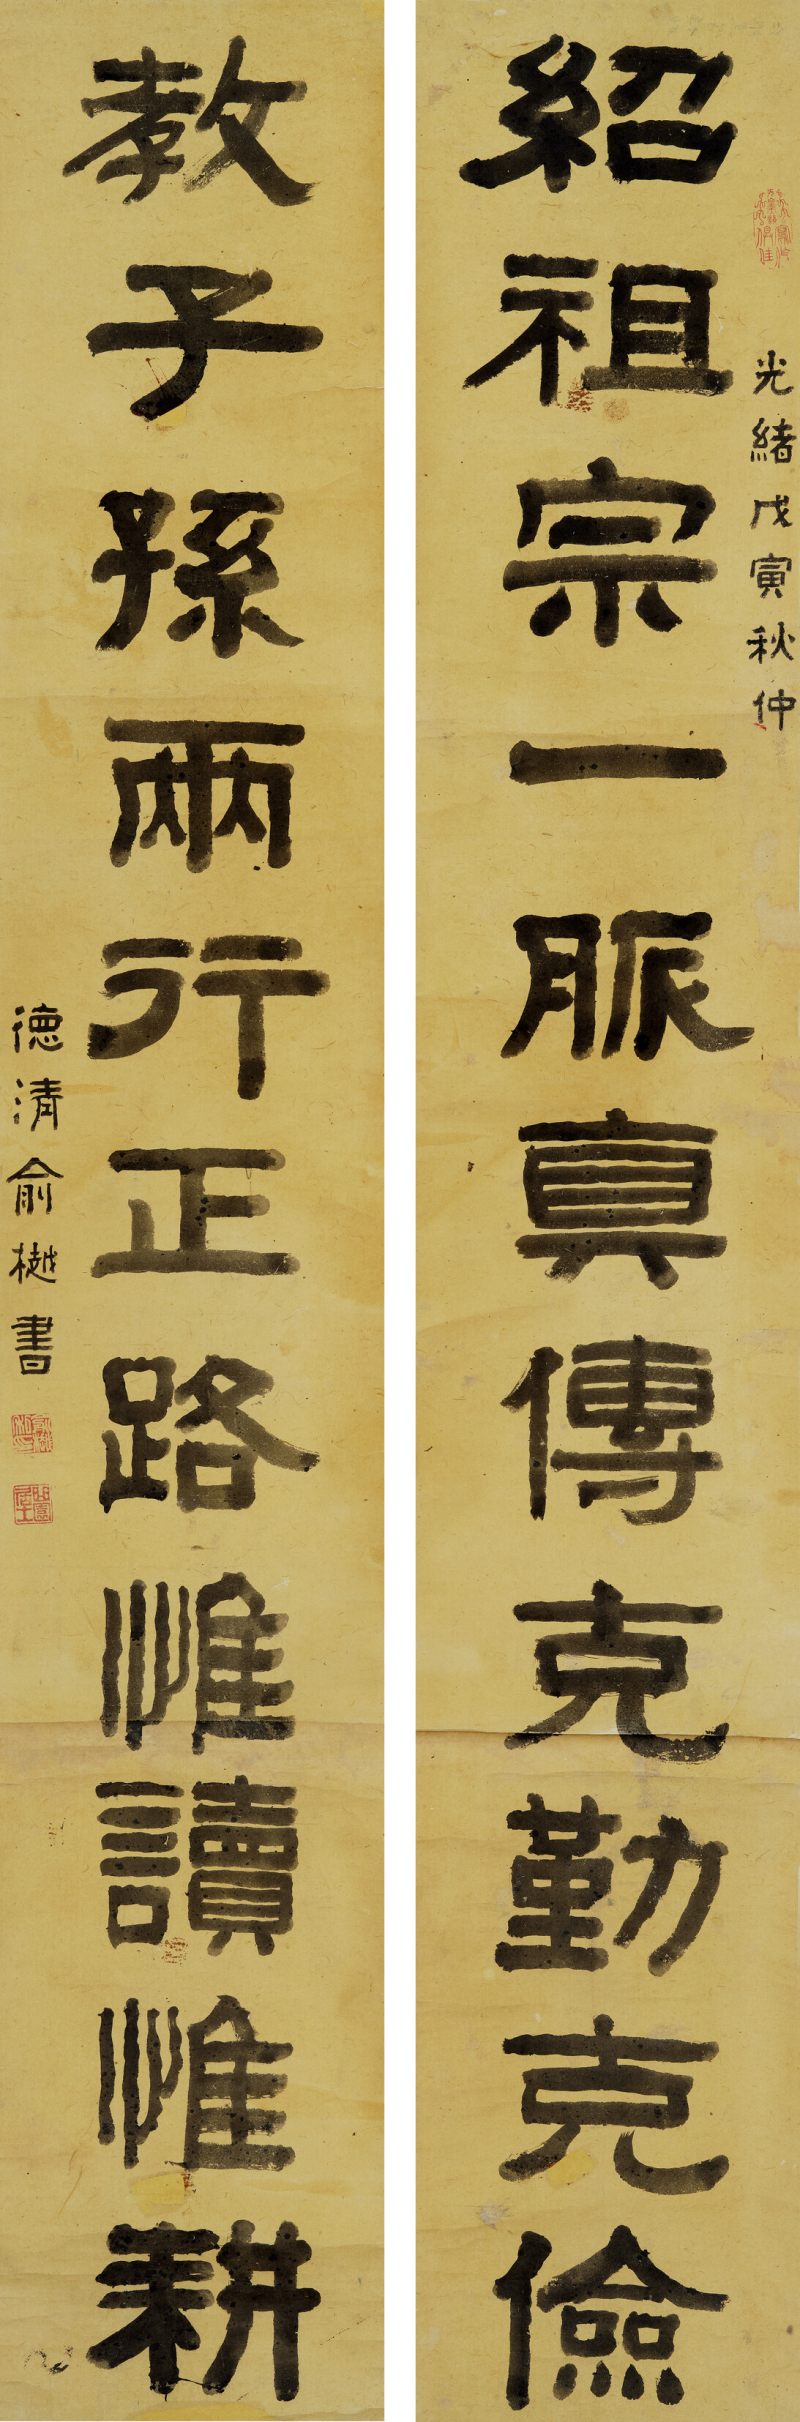 光緒戊寅秋仲
紹祖宗一脈真傳克勤克儉
教子孫兩行正路惟讀惟耕
德清俞樾書